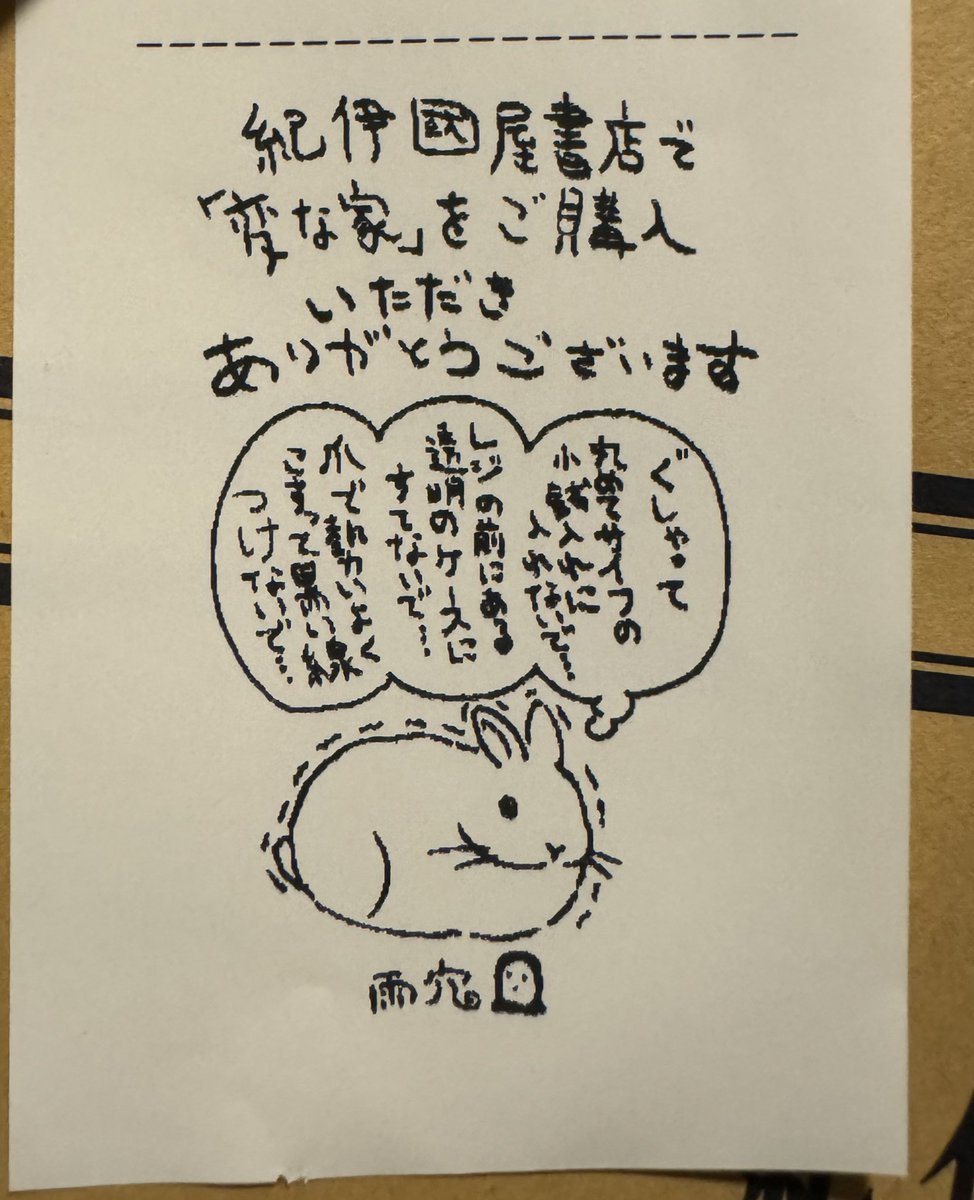 紀伊國屋書店で
「変な家」をご購入
いただき
ありがとうございます
ぐしゃって
丸めてサイフの
小銭入れに
入れないで…
レジの前にある
透明のケースに
すてないで…
爪で勢いよく
こすって黒い線
つけないで…
雨穴